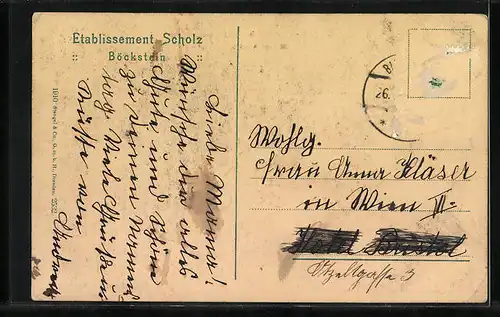 Etablissement Scholz
:: Böckstein ::
1910 Stengel & Co., G. m. b. H., Dresden
Liebe Mama!
Wünsche dir alles
Gute und Schöne
zu deinem Namens-
tag. Viele Grüße und
Küsse von
26.
Wohlg.
Frau Anna Kläser
in Wien III.
Hotel Bristol
Etzeltgasse 3